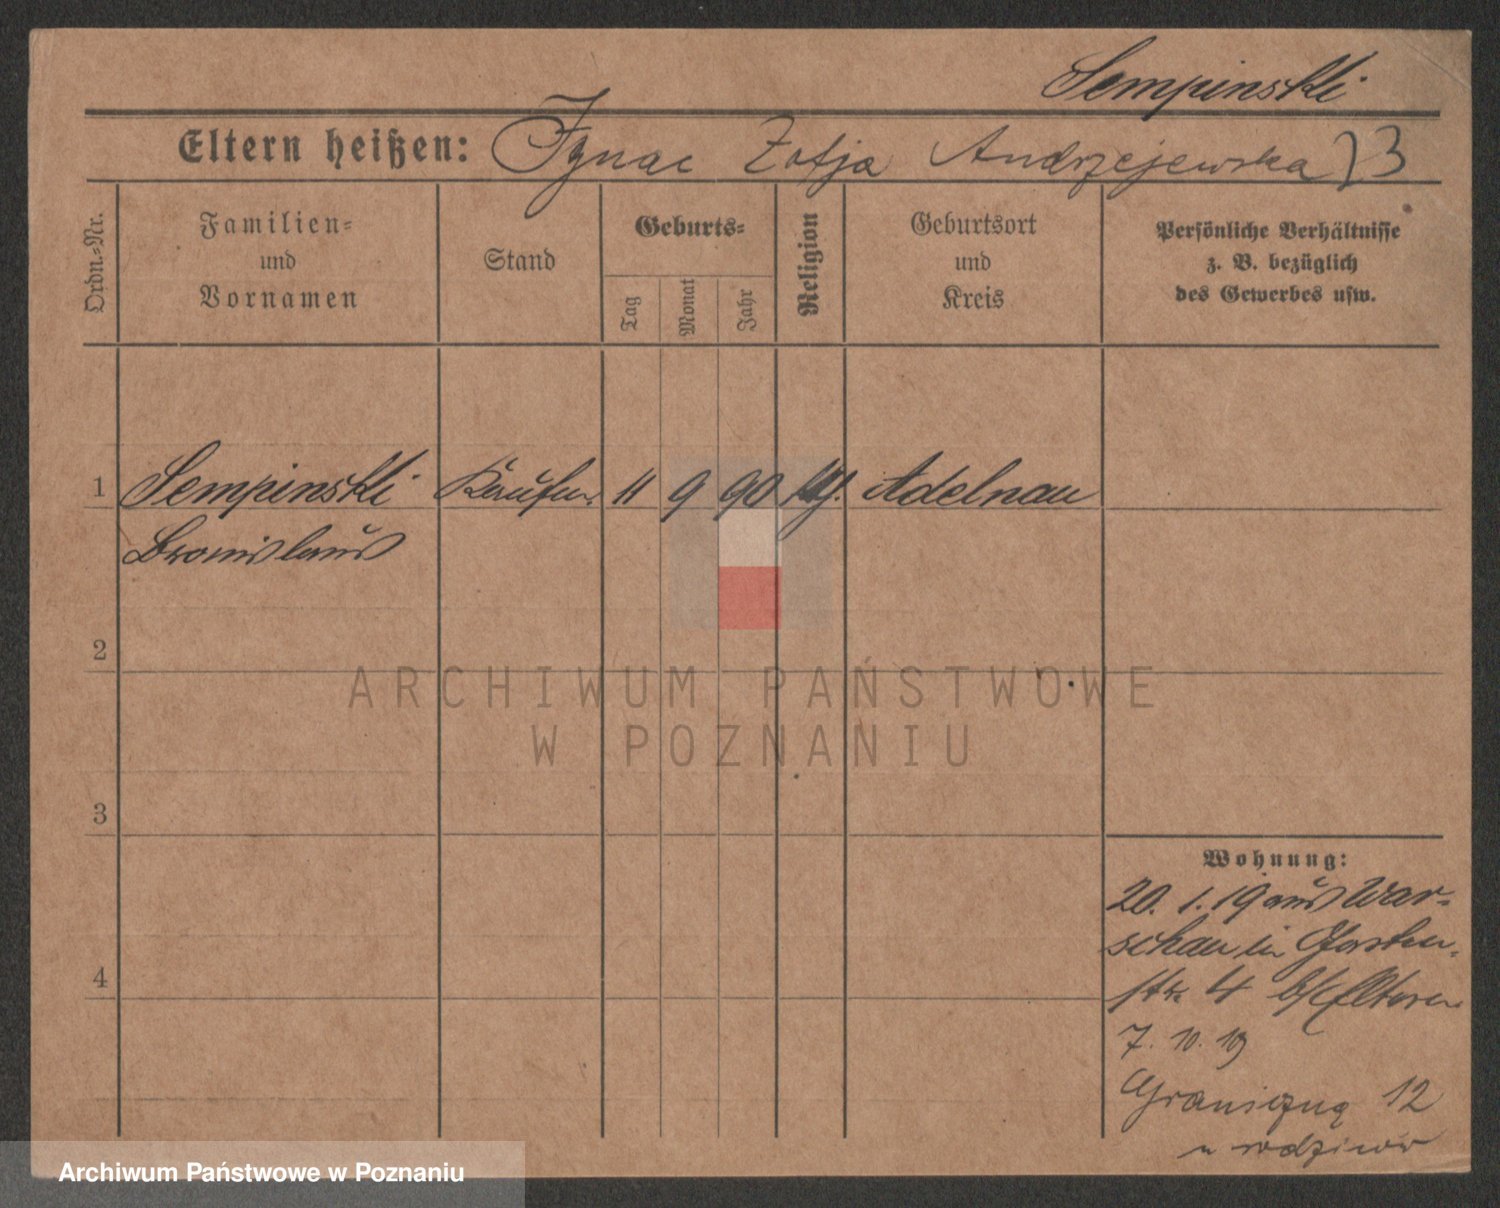 Sempinski
Eltern heißen: Ignac Zofja Andrzejewska 23
Ordn.-Nr.
Familien-
und
Vornamen
Stand
Geburts-
Tag
Monat
Jahr
Religion
Geburtsort
und
Kreis
Persönliche Verhältnisse
z. B. bezüglich
des Gewerbes usw.
1 Sempinski Kaufm. 11 9 90 Adelnau
Bronislaus
2
ARCHIWUM PAŃSTWOWE
W POZNANIU
3
Wohnung:
20. 1. 19 aus War-
schau in Garten-
str. 4 b/Eltern
4
7. 10. 19
Graniczną 12
u rodziców
Archiwum Państwowe w Poznaniu